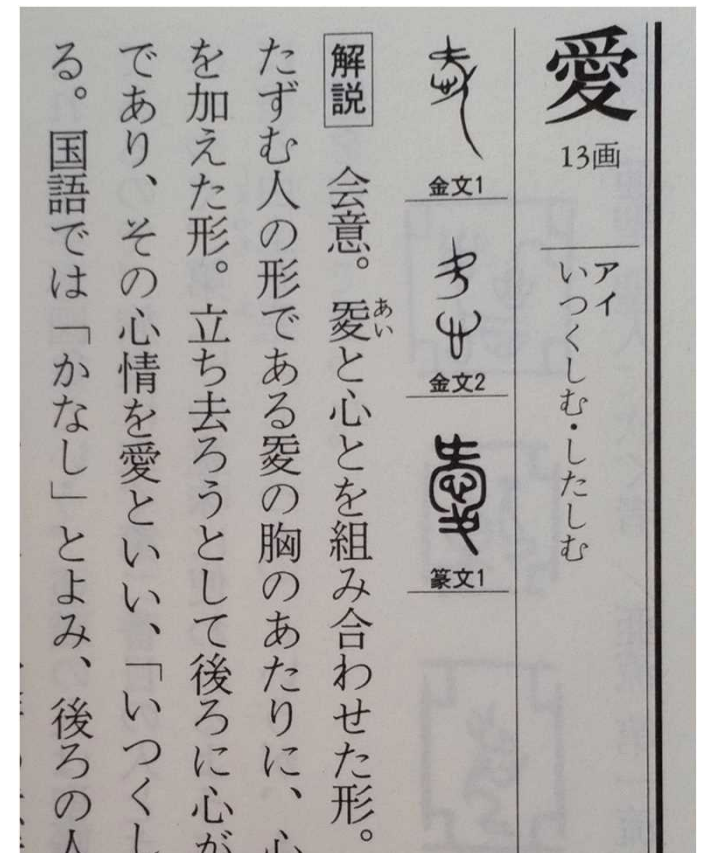 愛
13画
アイ
いつくしむ・したしむ
金文1
金文2
篆文1
解説 会意。㤅と心とを組み合わせた形。
あい
たずむ人の形である㤅の胸のあたりに、心
を加えた形。立ち去ろうとして後ろに心が
であり、その心情を愛といい、「いつくし
る。国語では「かなし」とよみ、後ろの人